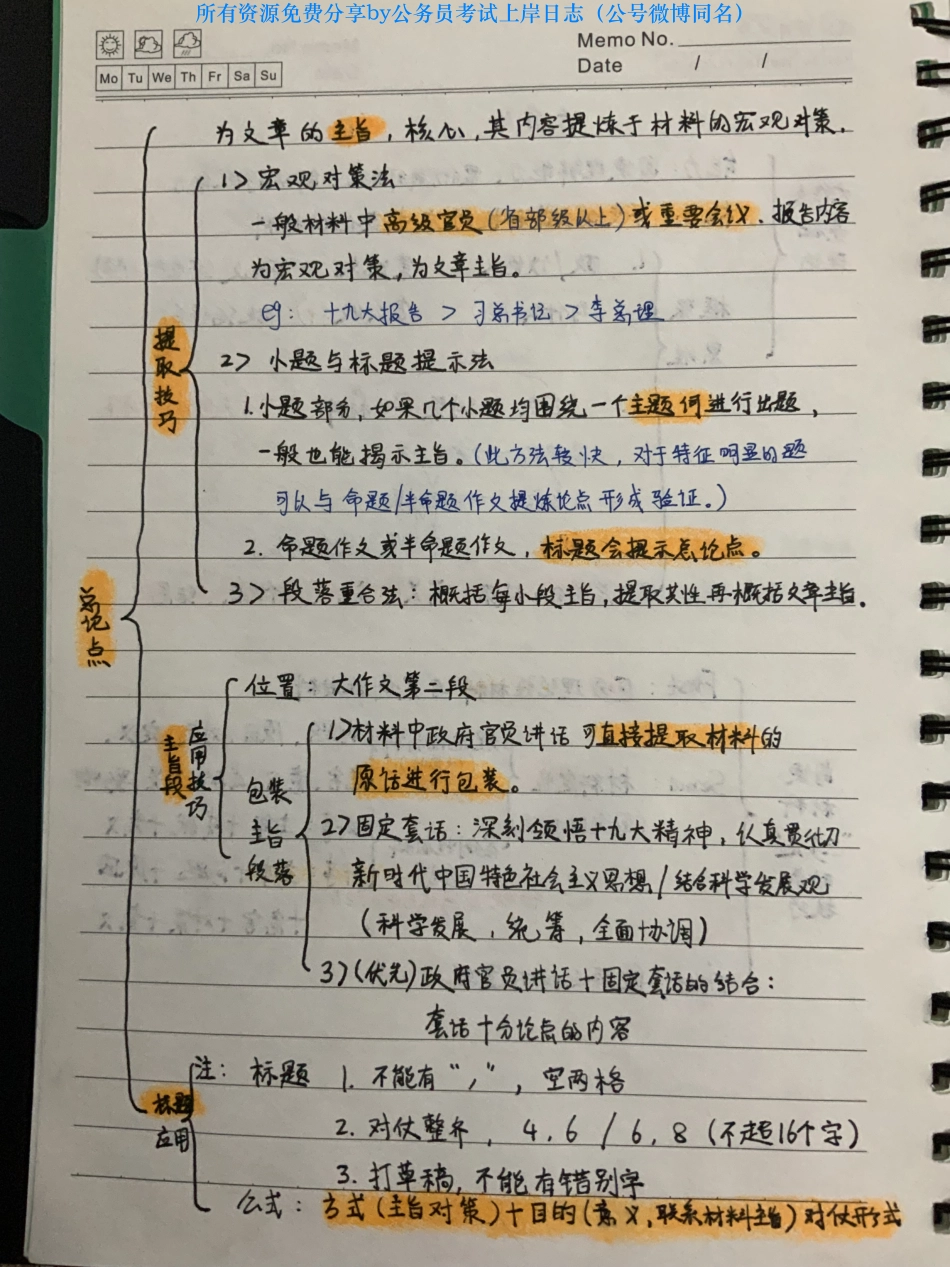 所有资源免费分享by公务员考试上岸日志（公号微博同名）
Memo No.
Mo Tu We Th Fr Sa Su
Date / /
为文章的主旨，核心，其内容提炼于材料的宏观对策．
1> 宏观对策法
一般材料中高级官员(省部级以上)或重要会议．报告内容
为宏观对策，为文章主旨。
eg: 十九大报告 > 习总书记 > 李总理
提取技巧
2> 小题与标题提示法
1.小题部分，如果几个小题均围绕一个主题词进行出题，
一般也能揭示主旨。(此方法较快，对于特征明显的题
可以与命题/半命题作文提炼论点形成验证。)
2. 命题作文或半命题作文，标题会提示总论点。
3> 段落重合法：概括每小段主旨，提取共性再概括文章主旨．
总论点
位置：大作文第二段
主旨段 应用技巧
包装主旨段落
1)材料中政府官员讲话可直接提取材料的
原话进行包装。
2)固定套话：深刻领悟十九大精神，认真贯彻
新时代中国特色社会主义思想/结合科学发展观
(科学发展，统筹，全面协调)
3)(优先)政府官员讲话+固定套话的结合：
套话+分论点的内容
标题应用
注：标题 1. 不能有“，”，空两格
2. 对仗整齐，4，6 / 6，8 (不超16个字)
3. 打草稿，不能有错别字
公式：方式(主旨对策)+目的(意义，联系材料主旨)对仗形式